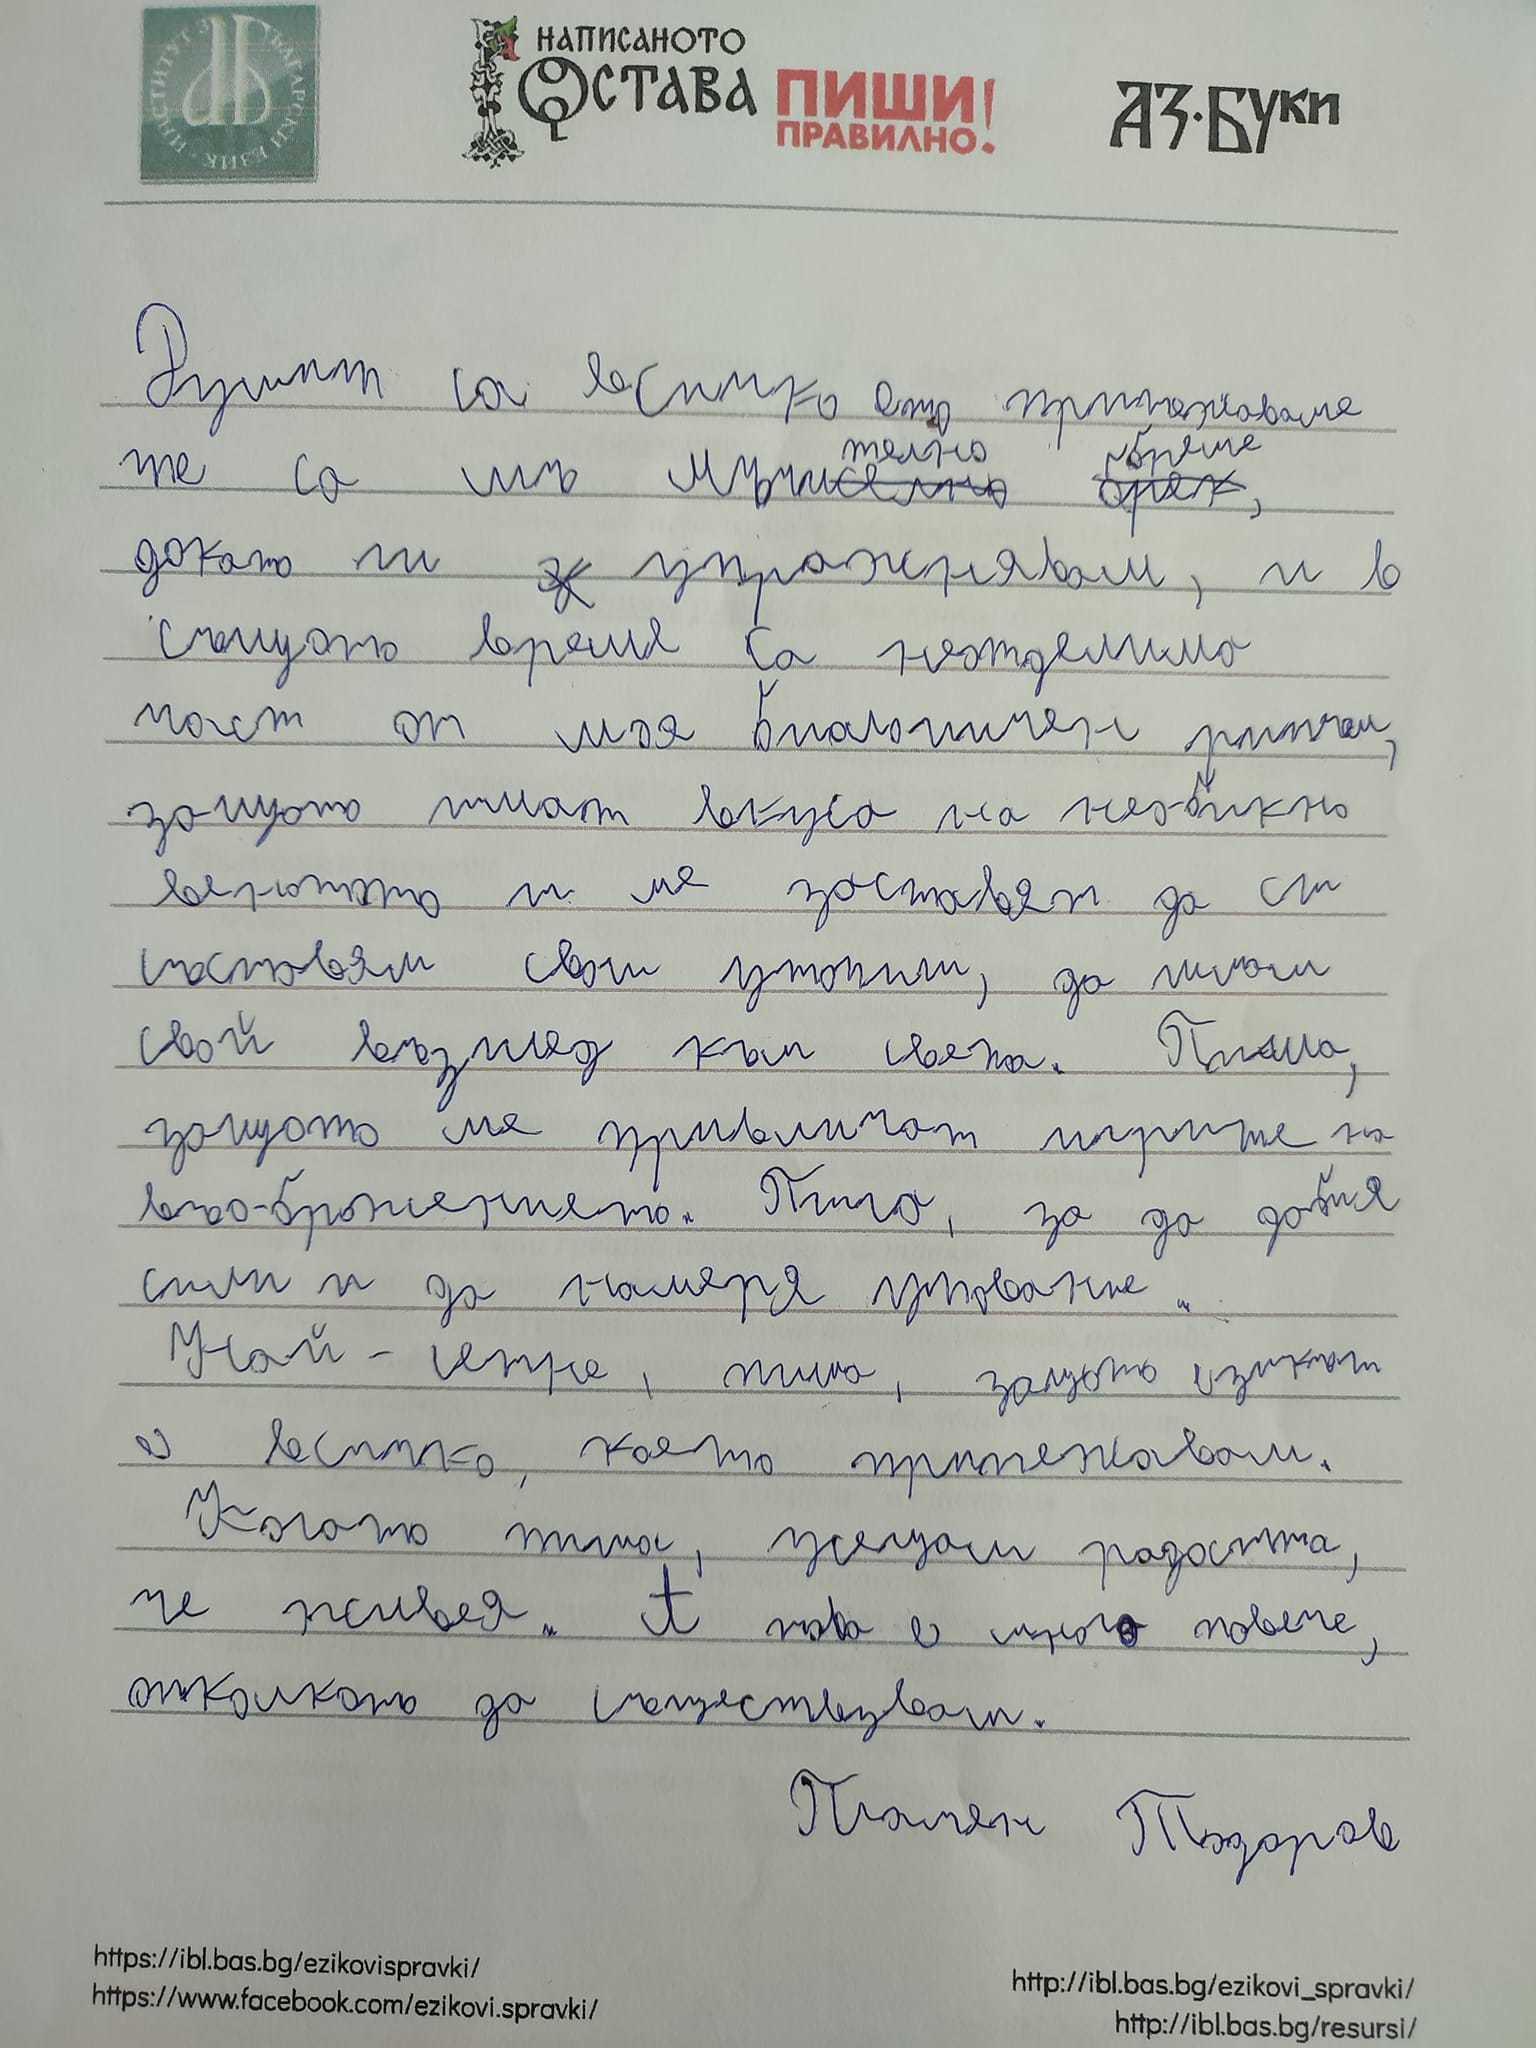 ИНСТИТУТ ЗА БЪЛГАРСКИ ЕЗИК
НАПИСАНОТО
ОСТАВА
ПИШИ
ПРАВИЛНО!
АЗ·БУКИ
Думите са всичко що притежаваме
те са мъчително бреме,
докато ги упражнявам, и в
същото време са неотделима
част от моя биологичен ритъм,
защото имат вкуса на необикно
веното и ме заставят да си
съставям свои утопии, да имам
свой възглед към света. Пиша,
защото ме привличат игрите на
въображението. Пиша, за да добия
сили и да намеря упование.
Най-сетне, пиша, защото езикът
е всичко, което притежавам.
Когато пиша, усещам радостта,
че живея. А това е много повече,
отколкото да съществувам.
Пламен Тодоров
https://ibl.bas.bg/ezikovispravki/
https://www.facebook.com/ezikovi.spravki/
http://ibl.bas.bg/ezikovi_spravki/
http://ibl.bas.bg/resursi/